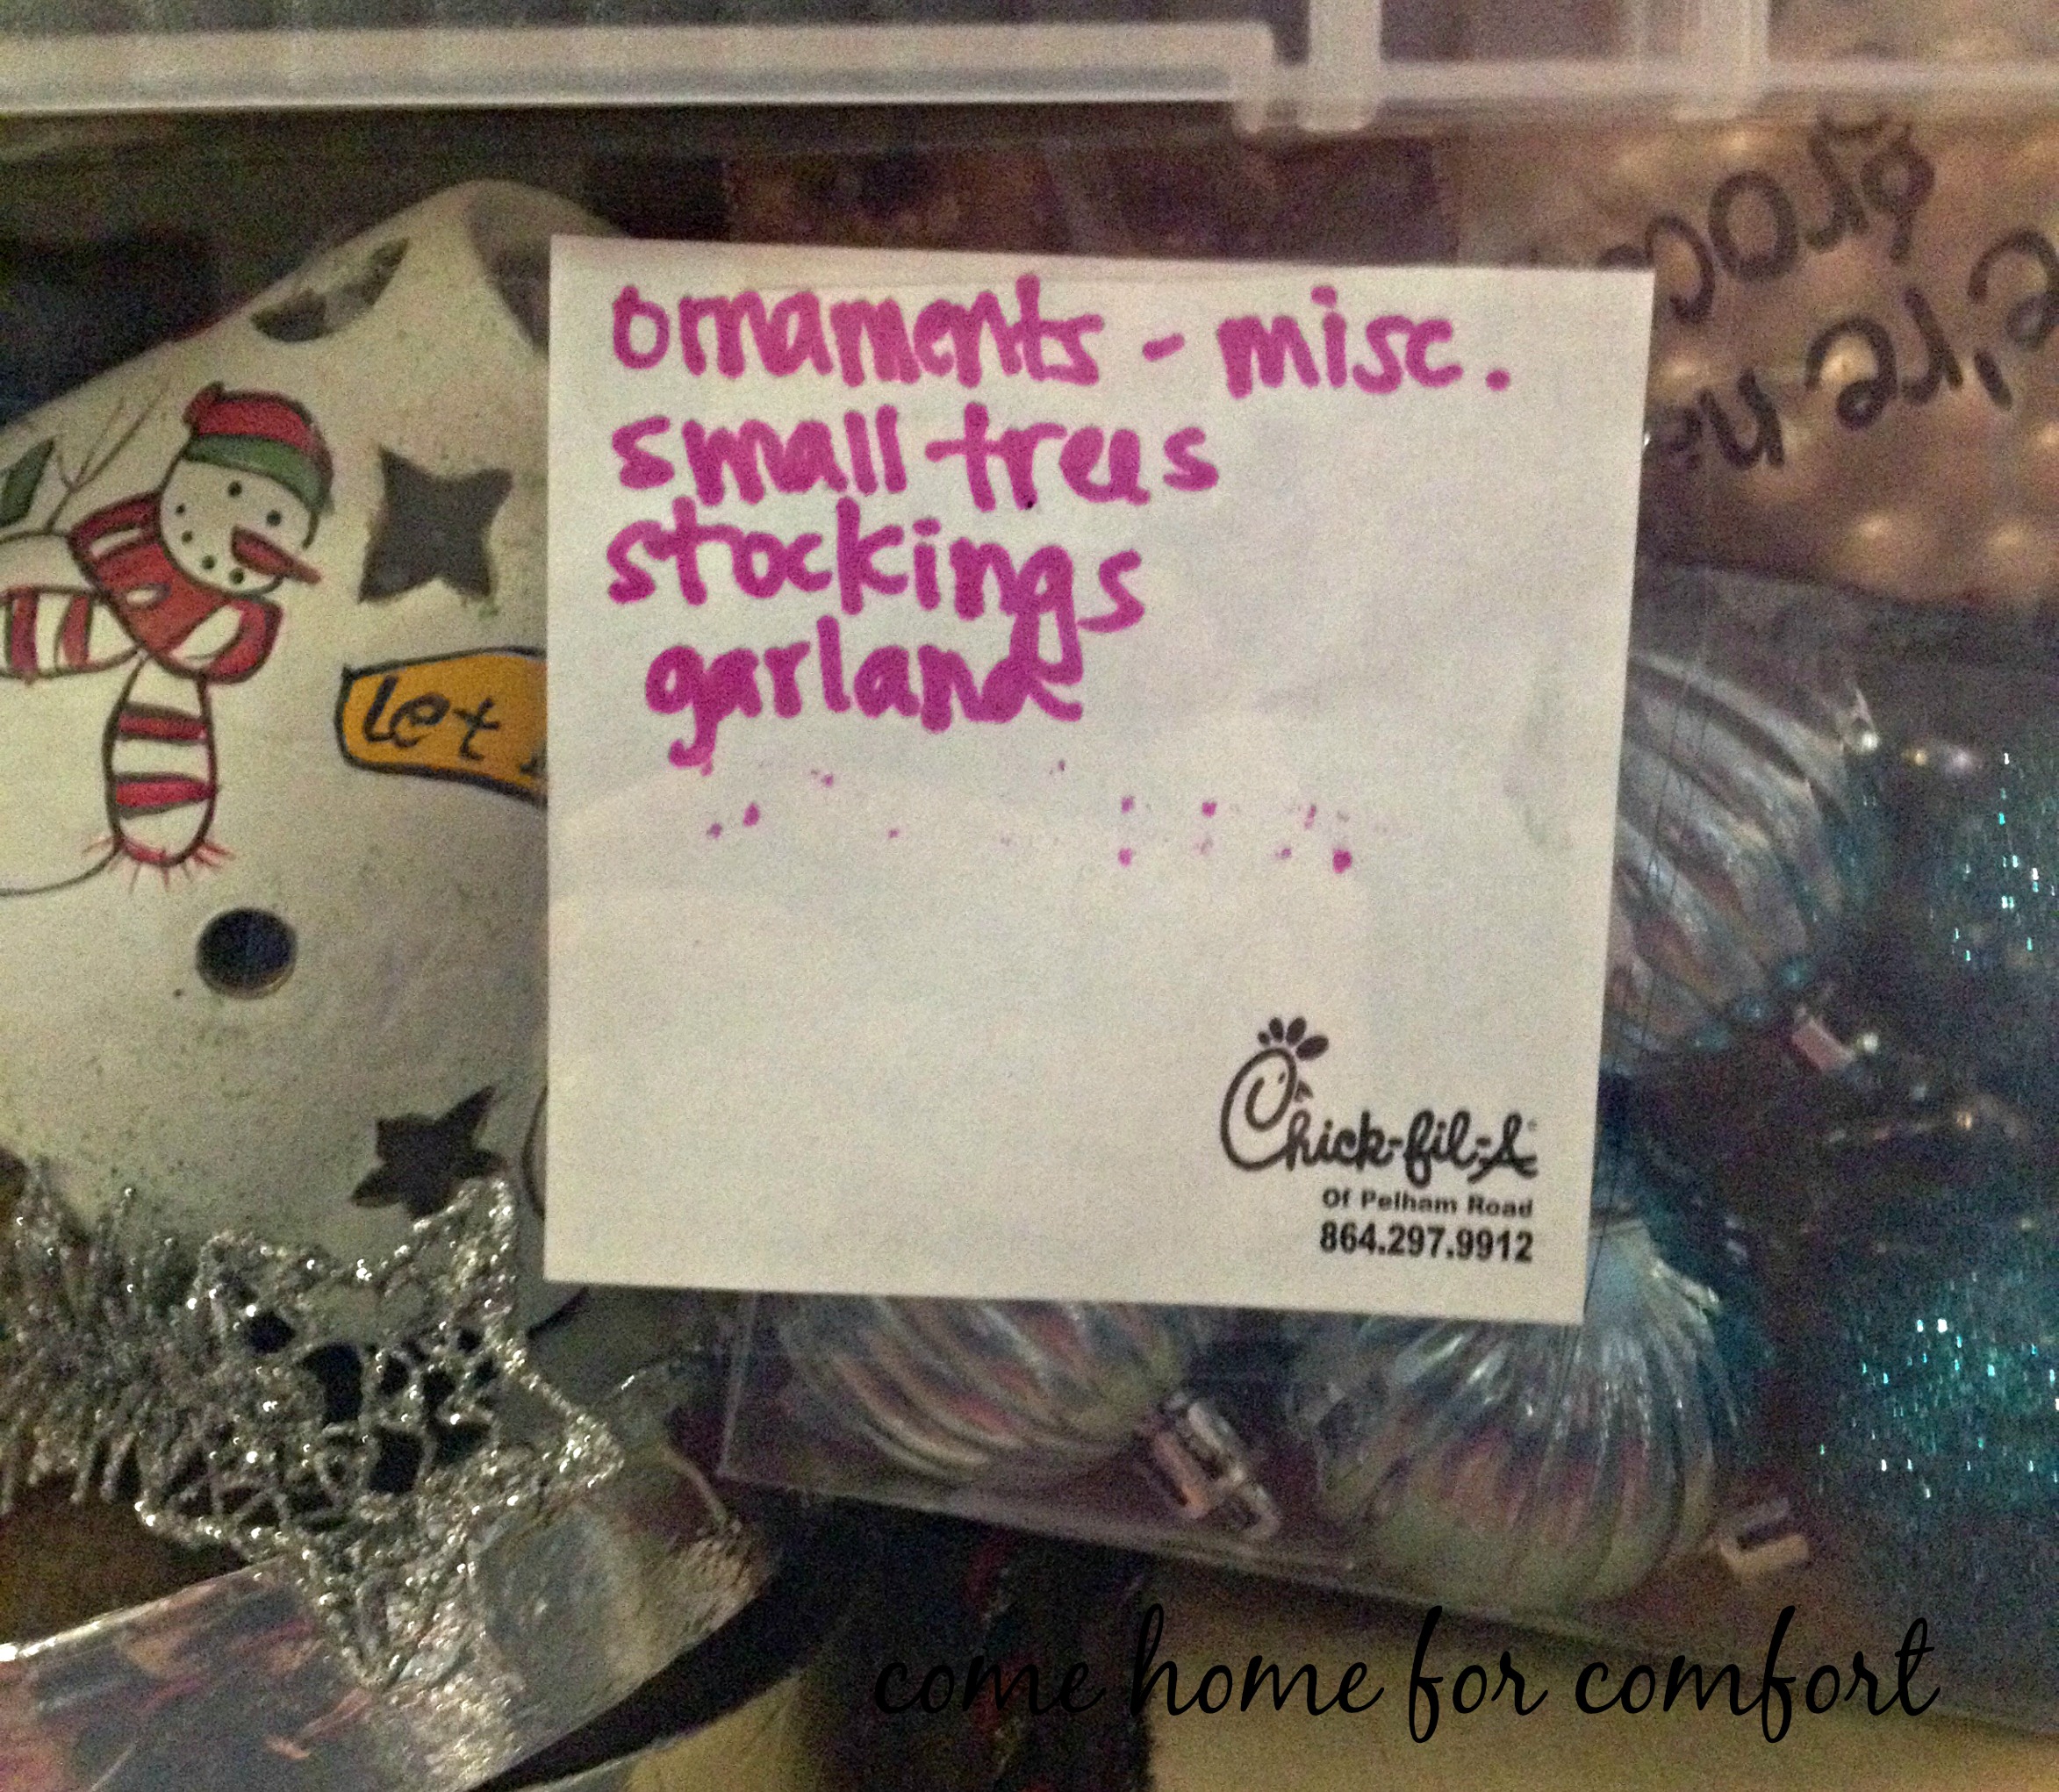 ornaments - misc.
small trees
stockings
garland
let
Chick-fil-A®
Of Pelham Road
864.297.9912
come home for comfort